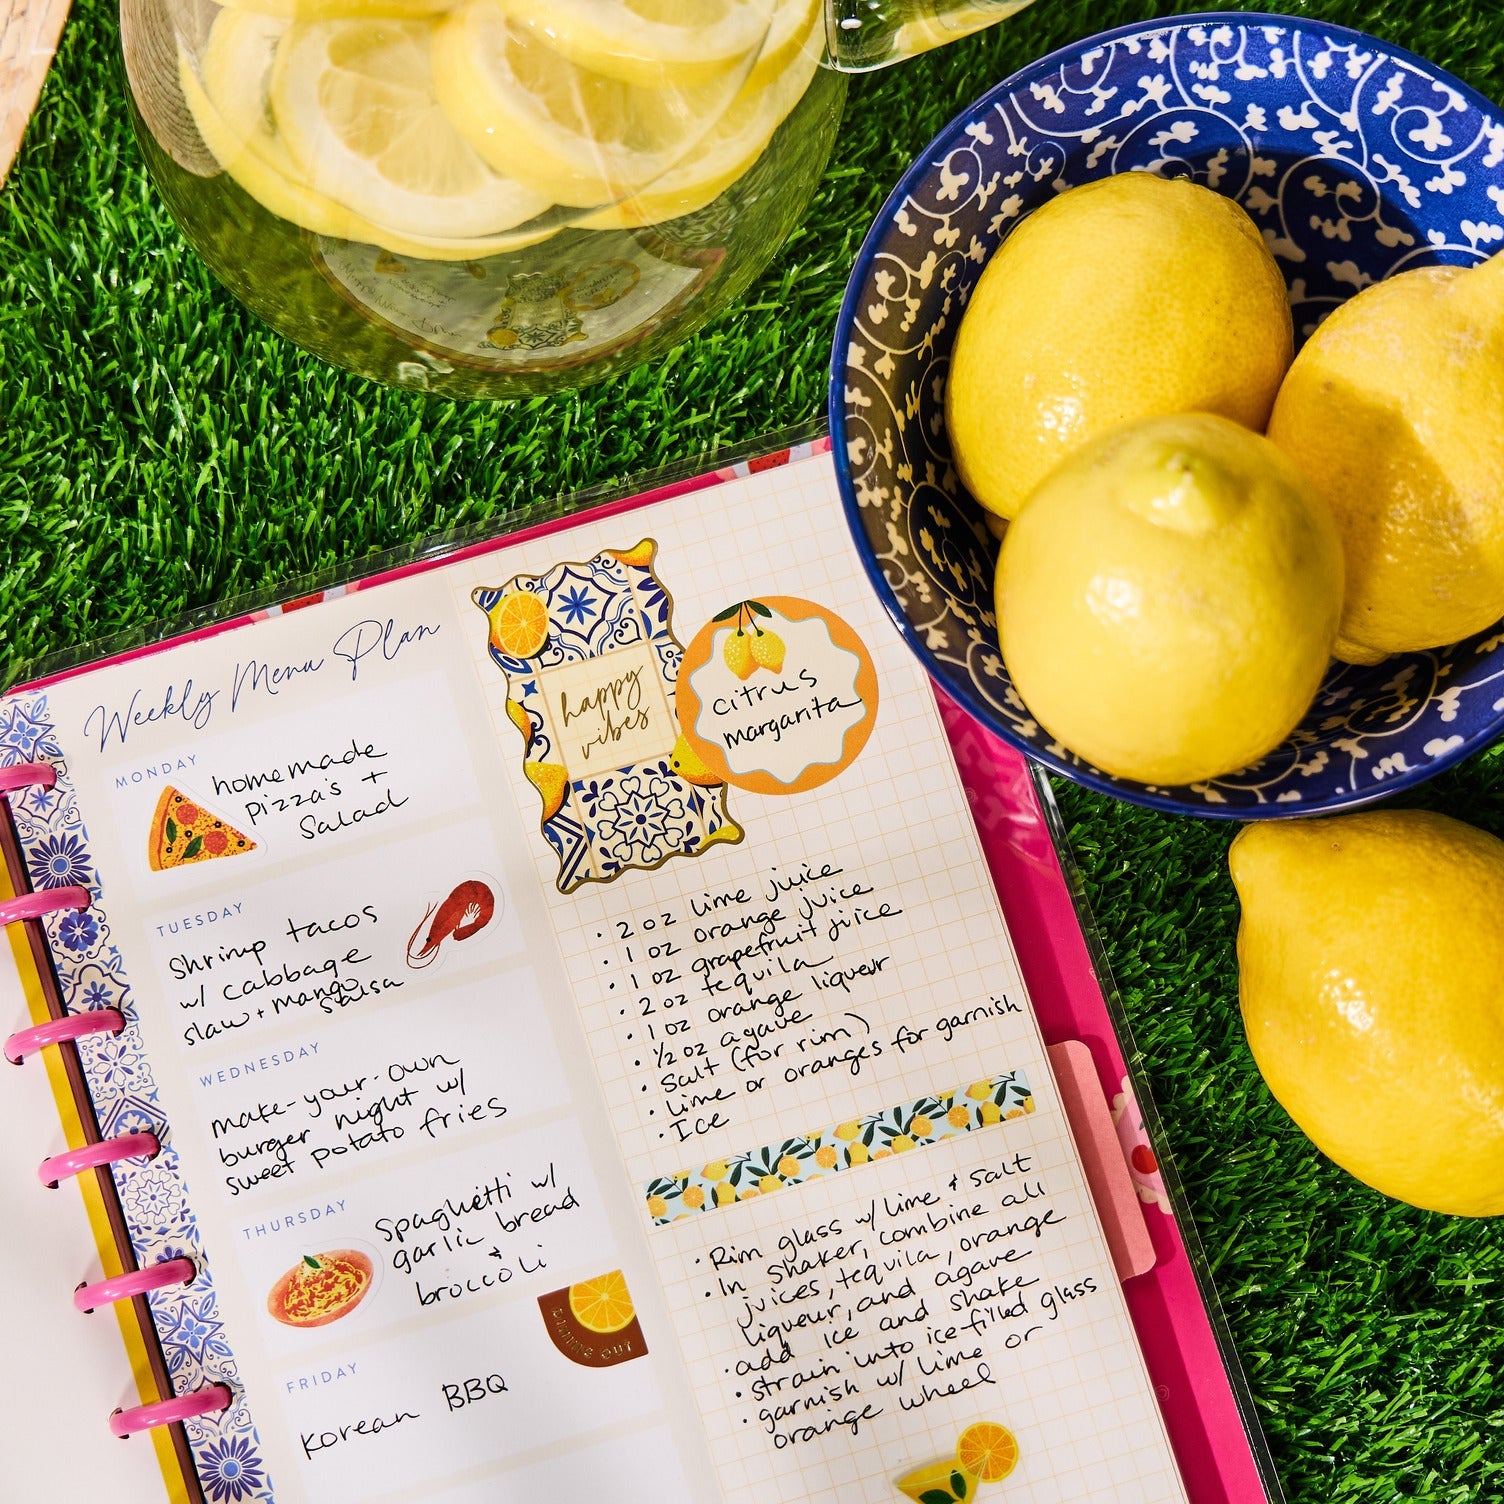 Weekly Menu Plan
MONDAY
homemade
pizza's +
salad
TUESDAY
Shrimp tacos
w/ cabbage
slaw + mango
salsa
WEDNESDAY
make-your-own
burger night w/
sweet potato fries
THURSDAY
Spaghetti w/
garlic bread
+
broccoli
DINING OUT
FRIDAY
Korean BBQ
happy
vibes
citrus
margarita
• 2 oz lime juice
• 1 oz orange juice
• 1 oz grapefruit juice
• 2 oz tequila
• 1 oz orange liqueur
• ½ oz agave
• Salt (for rim)
• lime or oranges for garnish
• Ice
• Rim glass w/ lime + salt
• In shaker, combine all
juices, tequila, orange
liqueur, and agave
• add ice and shake
• strain into ice filled glass
• garnish w/ lime or
orange wheel